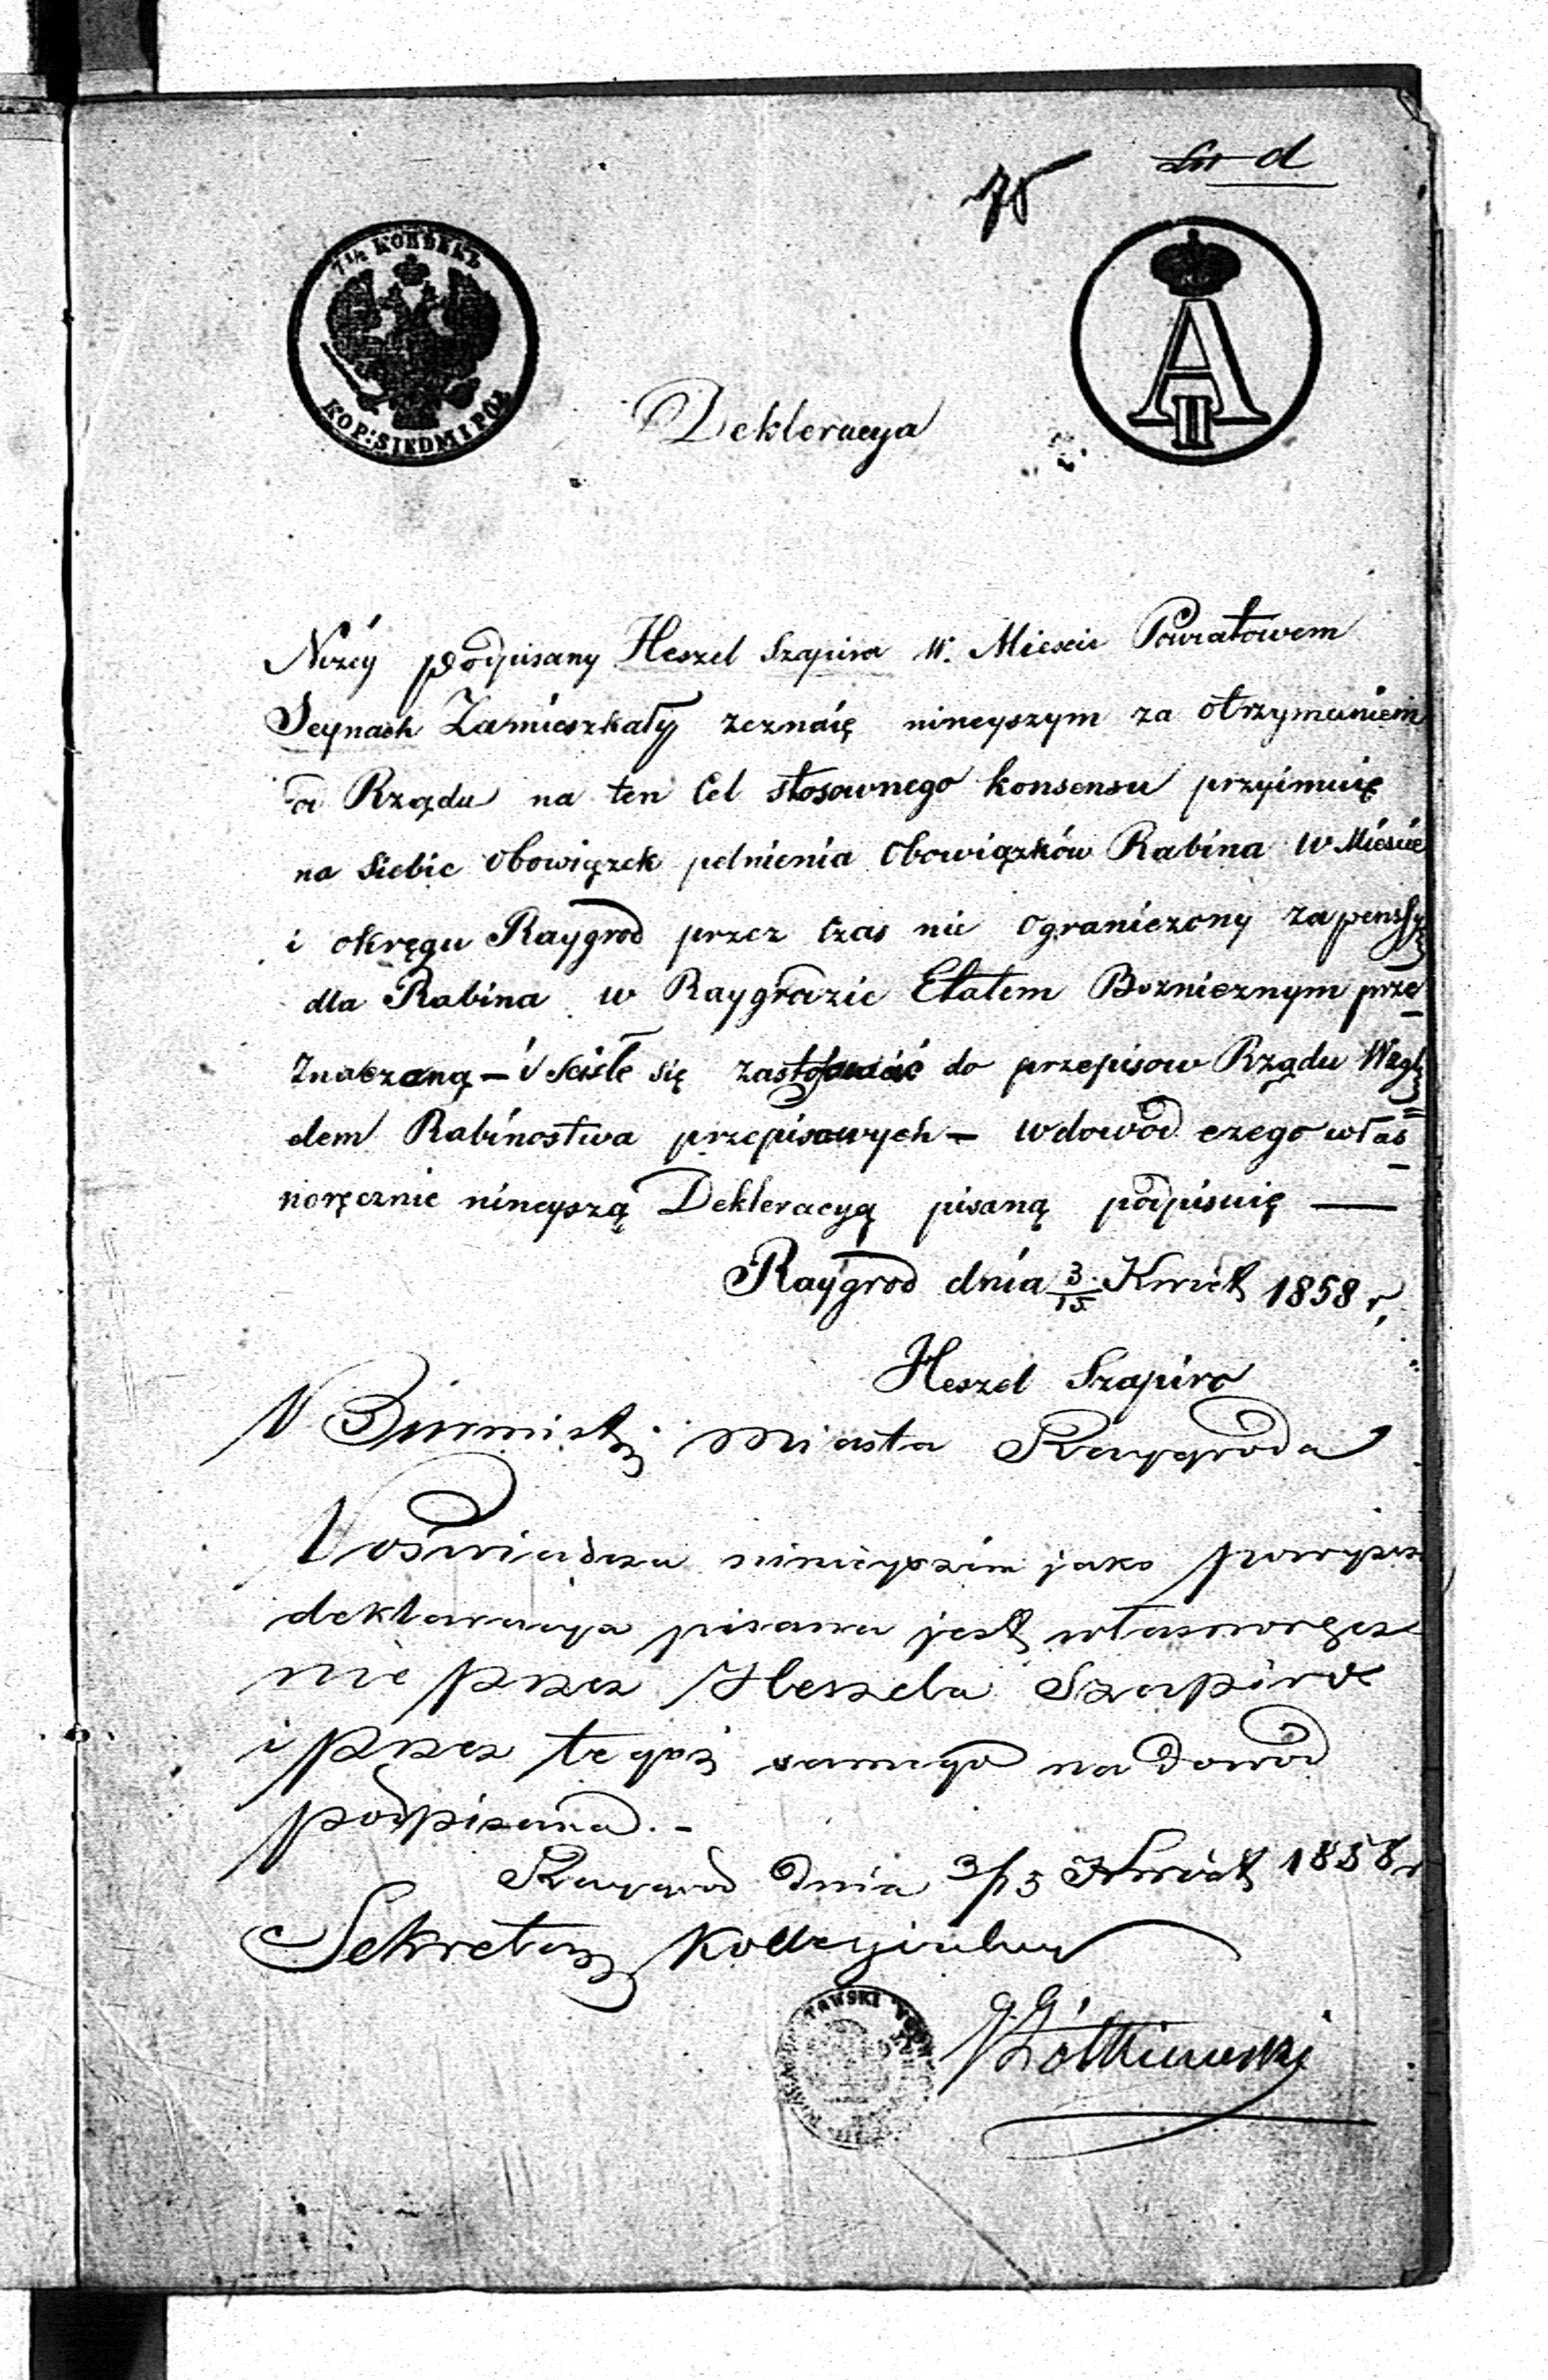 Lit d
75
7 1/2 КОПѢЕКЪ
KOP: SIEDM I PÓŁ
A II
Dekleracya
Niżéy podpisany Heszel Szapira w. Mieście Powiatowem
Seynach Zamieszkały zeznaię nineyszym za otrzymaniem
od Rządu na ten Cel stosownego konsensu przyimuię
na Siebie Obowiązek pełnienia Obowiązków Rabina w Mieście
i okręgu Raygrod przez Czas nie Ograniczony za pensyą
dla Rabina w Raygrodzie Etatem Bozniecznym prze
Znaczoną – i sciśle się zastosować do przepisow Rządu Wzglę
dem Rabinostwa przepisowych – wdowód czego włas
noręcznie nineyszą Dekleracyą pisaną podpisuię —
Raygrod dnia 3/15 Kwiet 1858 r,
Heszel Szapiro
Burmistrz Miasta Raygroda
Poświadcza ninieyszim jako powyższa
deklaracya pisana jest własnoręcz
nie przez Heszela Szapiro
i przez tegoż samego na dowód
podpisana. –
Raygrod dnia 3/15 Kwiet 1858 r
Sekretarz Kollegialny